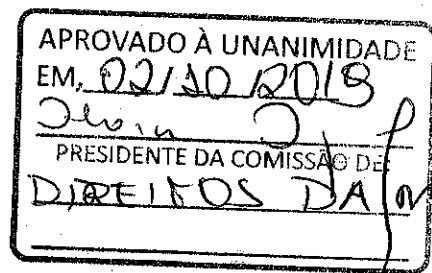 APROVADO À UNANIMIDADE
EM, 02/10/2019
PRESIDENTE DA COMISSÃO DE
DIREITOS DA